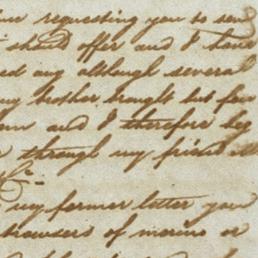 requesting you to send
should offer and I have
any although several
my brother, brought but few
and I therefore beg
through my friend
my former letter you
trowsers of marino or